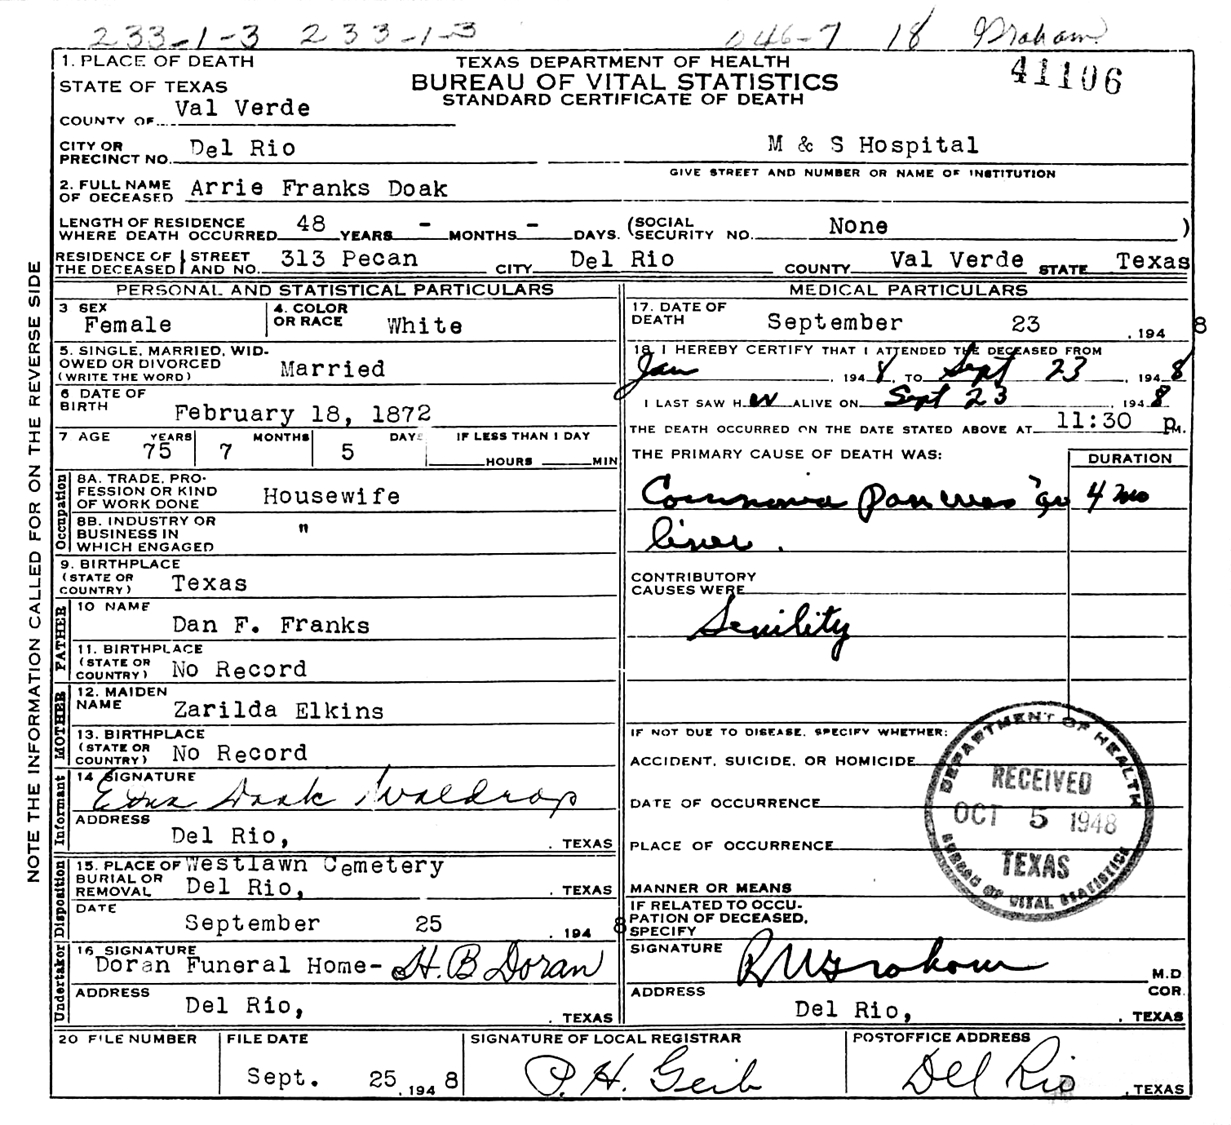 233-1-3 233-1-3 046-7 18 Graham
41106
TEXAS DEPARTMENT OF HEALTH
BUREAU OF VITAL STATISTICS
STANDARD CERTIFICATE OF DEATH
1. PLACE OF DEATH
STATE OF TEXAS
COUNTY OF Val Verde
CITY OR PRECINCT NO. Del Rio M & S Hospital
GIVE STREET AND NUMBER OR NAME OF INSTITUTION
2. FULL NAME OF DECEASED Arrie Franks Doak
LENGTH OF RESIDENCE WHERE DEATH OCCURRED 48 YEARS - MONTHS - DAYS. (SOCIAL SECURITY NO. None )
RESIDENCE OF THE DECEASED STREET AND NO. 313 Pecan CITY Del Rio COUNTY Val Verde STATE Texas
NOTE THE INFORMATION CALLED FOR ON THE REVERSE SIDE
PERSONAL AND STATISTICAL PARTICULARS
3 SEX Female
4. COLOR OR RACE White
5. SINGLE, MARRIED, WIDOWED OR DIVORCED (WRITE THE WORD) Married
6 DATE OF BIRTH February 18, 1872
7 AGE YEARS 75 MONTHS 7 DAYS 5 IF LESS THAN 1 DAY HOURS MIN
Occupation
8A. TRADE, PROFESSION OR KIND OF WORK DONE Housewife
8B. INDUSTRY OR BUSINESS IN WHICH ENGAGED "
9. BIRTHPLACE (STATE OR COUNTRY) Texas
FATHER
10 NAME Dan F. Franks
11. BIRTHPLACE (STATE OR COUNTRY) No Record
MOTHER
12. MAIDEN NAME Zarilda Elkins
13. BIRTHPLACE (STATE OR COUNTRY) No Record
Informant
14 SIGNATURE Edna Doak Waldrop
ADDRESS Del Rio, . TEXAS
Disposition
15. PLACE OF BURIAL OR REMOVAL Westlawn Cemetery Del Rio, . TEXAS
DATE September 25 . 194 8
Undertaker
16 SIGNATURE Doran Funeral Home- H. B Doran
ADDRESS Del Rio, . TEXAS
MEDICAL PARTICULARS
17. DATE OF DEATH September 23 . 194 8
18. I HEREBY CERTIFY THAT I ATTENDED THE DECEASED FROM
Jan . 194 8, TO Sept 23 , 194 8
I LAST SAW H er ALIVE ON Sept 23 194 8.
THE DEATH OCCURRED ON THE DATE STATED ABOVE AT 11:30 p M.
THE PRIMARY CAUSE OF DEATH WAS: DURATION
Pancreas 4 mo
liver.
CONTRIBUTORY CAUSES WERE
Senility
IF NOT DUE TO DISEASE, SPECIFY WHETHER:
ACCIDENT, SUICIDE, OR HOMICIDE
DATE OF OCCURRENCE
PLACE OF OCCURRENCE
MANNER OR MEANS
IF RELATED TO OCCUPATION OF DECEASED, SPECIFY
DEPARTMENT OF HEALTH
RECEIVED
OCT 5 1948
TEXAS
BUREAU OF VITAL STATISTICS
SIGNATURE R W Graham M.D COR.
ADDRESS Del Rio, . TEXAS
20 FILE NUMBER
FILE DATE Sept. 25 . 194 8
SIGNATURE OF LOCAL REGISTRAR P. H. Geib
POSTOFFICE ADDRESS Del Rio , TEXAS